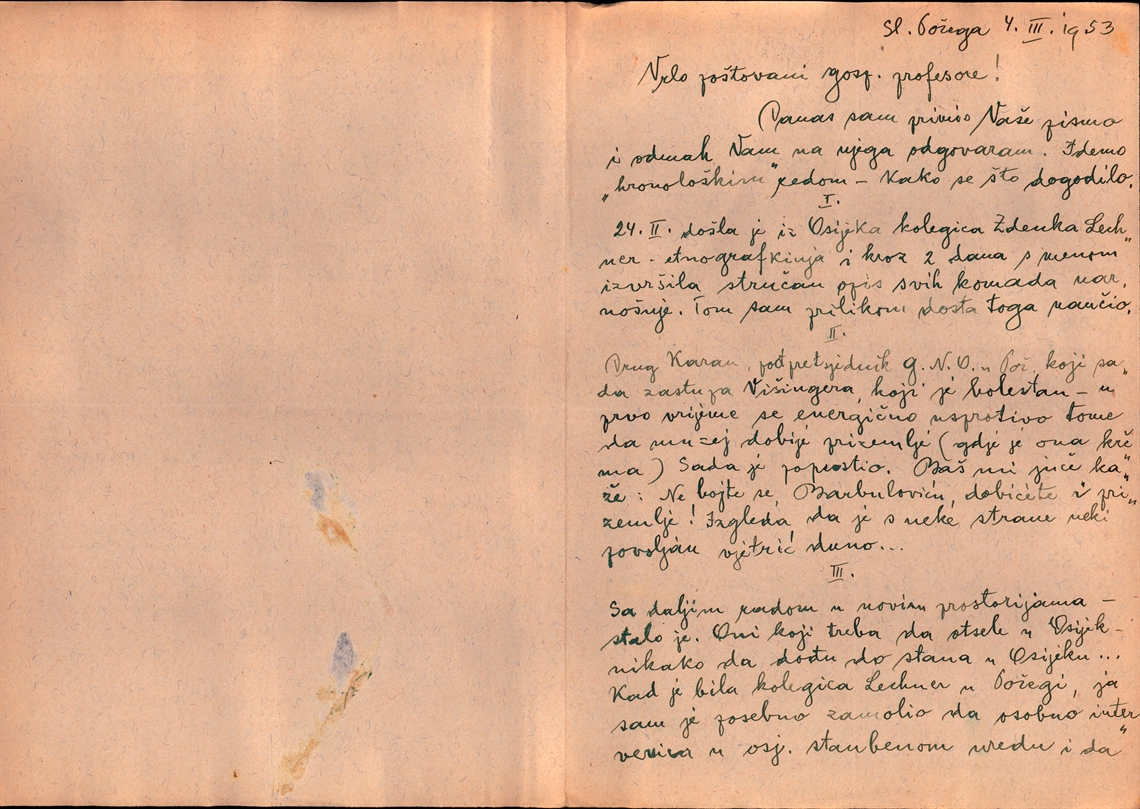 Sl. Požega 4. III. 1953
Vrlo poštovani gosp. profesore!
Danas sam primio Vaše pismo
i odmah Vam na njega odgovaram. Idemo
„hronološkim" redom – kako se što dogodilo.
I.
24. II. došla je iz Osijeka kolegica Zdenka Lech„
ner - etnografkinja i kroz 2 dana s menom
izvršila stručan opis svih komada nar.
nošnje. Tom sam prilikom dosta toga naučio.
II.
Drug Karan, potpretsjednik G.N.O. u Pož. koji sa„
da zastupa Višingera, koji je bolestan – u
prvo vrijeme se energično usprotivo tome
da muzej dobije prizemlje (gdje je ona krč„
ma) Sada je popustio. Baš mi juče ka„
že: Ne bojte se, Barbuloviću, dobićete i pri„
zemlje! Izgleda da je s neke strane neki
povoljan vjetrić duno...
III.
Sa daljim radom u novim prostorijama –
stalo je. Oni koji treba da otsele u Osijek –
nikako da dođu do stana u Osijeku...
Kad je bila kolegica Lechner u Požegi, ja
sam je posebno zamolio da osobno inter„
venira u osj. stanbenom uredu i da